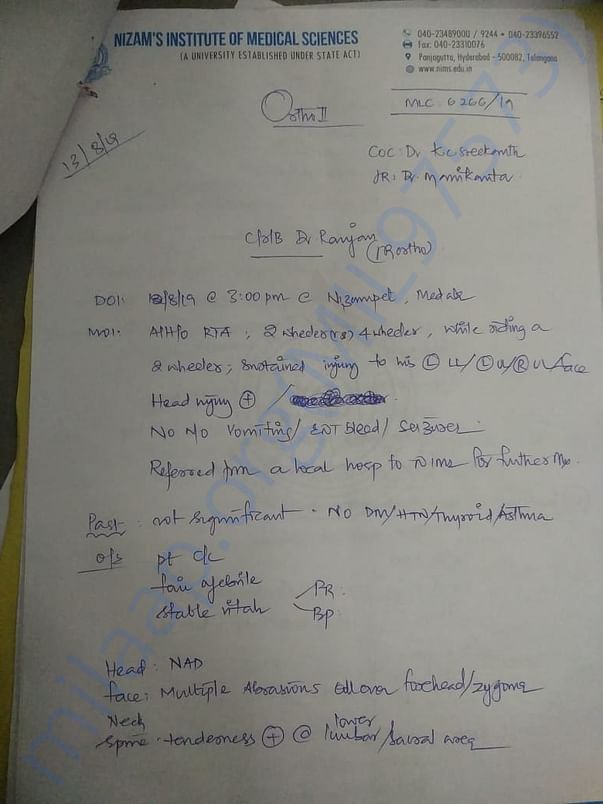 NIZAM'S INSTITUTE OF MEDICAL SCIENCES
(A UNIVERSITY ESTABLISHED UNDER STATE ACT)
040-23489000 / 9244 • 040-23396552
Fax: 040-23310076
Panjagutta, Hyderabad - 500082, Telangana
www.nims.edu.in
Ortho II
MLC: 6266/19
13/8/19
COC: Dr K.C Sreekanth
JR: Dr. Manikanta
C/S/B Dr Ranjan
(JR ortho)
DOI: 12/8/19 @ 3:00 pm @ Nizampet, Medak
MOI: A/H/o RTA; 2 wheeler (vs) 4 wheeler, while riding a
2 wheeler; sustained injury to his Ⓛ LL/ Ⓛ U/ Ⓡ UL/face
Head injury ⊕ /
No H/o vomiting/ ENT bleed/ seizures.
Referred from a local hosp to NIMS for further Mx.
Past: not significant. No DM/HTN/Thyroid/Asthma
O/E pt C/C
fair afebrile
stable vitals PR:
BP:
Head: NAD
face: Multiple Abrasions all over forehead/zygoma
Neck
Spine: tenderness ⊕ @ lower lumbar/sacral area
milaap.org(MIL97573)